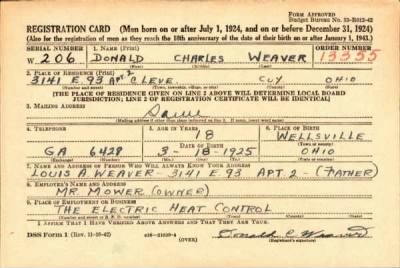 FORM APPROVED
Budget Bureau No. 33-R012-42
REGISTRATION CARD (Men born on or after July 1, 1924, and on or before December 31, 1924)
(Also for the registration of men as they reach the 18th anniversary of the date of their birth on or after January 1, 1943.)
SERIAL NUMBER 1. NAME (Print) ORDER NUMBER
W 206 DONALD CHARLES WEAVER 13355
2. PLACE OF RESIDENCE (Print)
3141 E. 93 APT 2 CLEVE. CUY OHIO
(Number and street) (Town, township, village, or city) (County) (State)
[THE PLACE OF RESIDENCE GIVEN ON LINE 2 ABOVE WILL DETERMINE LOCAL BOARD
JURISDICTION; LINE 2 OF REGISTRATION CERTIFICATE WILL BE IDENTICAL]
3. MAILING ADDRESS
Same
4. TELEPHONE 5. AGE IN YEARS 6. PLACE OF BIRTH
18 WELLSVILLE
DATE OF BIRTH
GA 6428 3-18-1925 OHIO
7. NAME AND ADDRESS OF PERSON WHO WILL ALWAYS KNOW YOUR ADDRESS
LOUIS A. WEAVER 3141 E. 93 APT. 2 - (FATHER)
8. EMPLOYER'S NAME AND ADDRESS
MR. MOWER (OWNER)
9. PLACE OF EMPLOYMENT OR BUSINESS
THE ELECTRIC HEAT CONTROL
I AFFIRM THAT I HAVE VERIFIED ABOVE ANSWERS AND THAT THEY ARE TRUE.
DSS Form 1 (Rev. 11-16-42) (OVER) Donald C Weaver
(Registrant's signature)